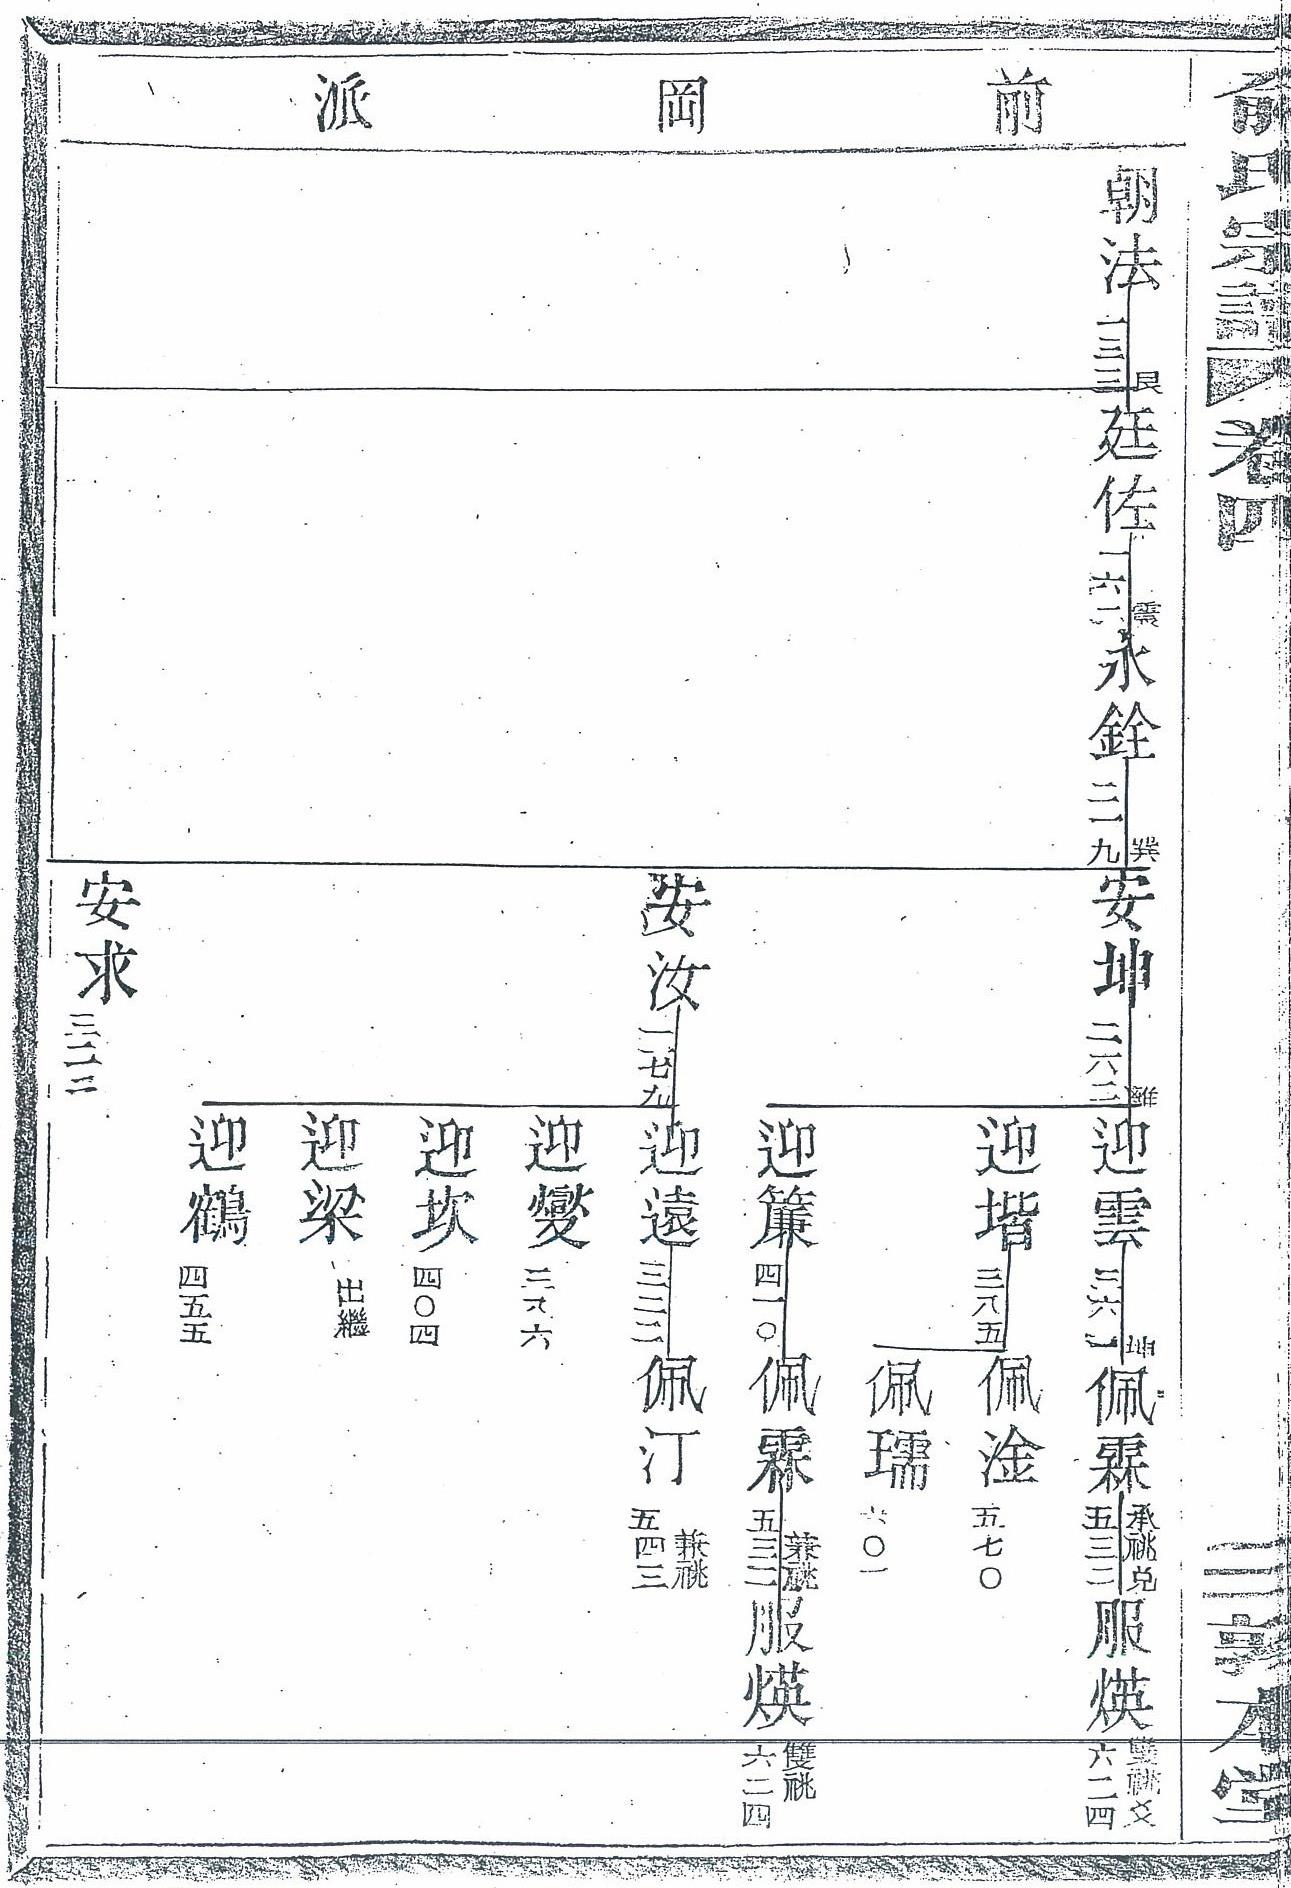 俞氏宗譜 卷四
三 敦本堂
前岡派
朝法 一三三 艮
廷佐 一六六 震
永銓 二一九 巽
安坤 二六三 離
迎雲 三六一 坤
佩霖 五三二 承祧兌
服煐 六二四 雙祧爻
迎堦 三八五
佩淦 五七〇
佩瓀 六〇一
迎簾 四一〇
佩霖 五三二 兼祧
服煐 六二四 雙祧
安汝 二七九
迎遠 三二二
佩汀 五四三 兼祧
迎燮 三六六
迎坎 四〇四
迎梁 出繼
迎鶴 四五五
安求 三二二